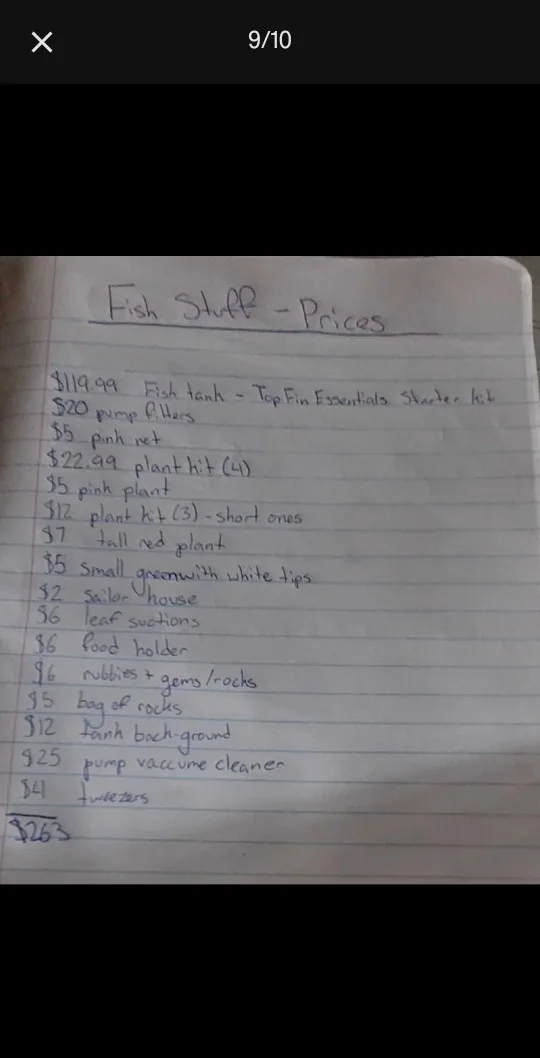 9/10
Fish Stuff - Prices
$119.99 Fish tank - Top Fin Essentials Starter kit
$20 pump filters
$5 pink net
$22.99 plant kit (4)
$5 pink plant
$12 plant kit (3) - short ones
$7 tall red plant
$5 small green with white tips
$2 sailor house
$6 leaf suctions
$6 food holder
$6 rubbies + gems/rocks
$5 bag of rocks
$12 tank back-ground
$25 pump vaccume cleaner
$4 tweezers
$263